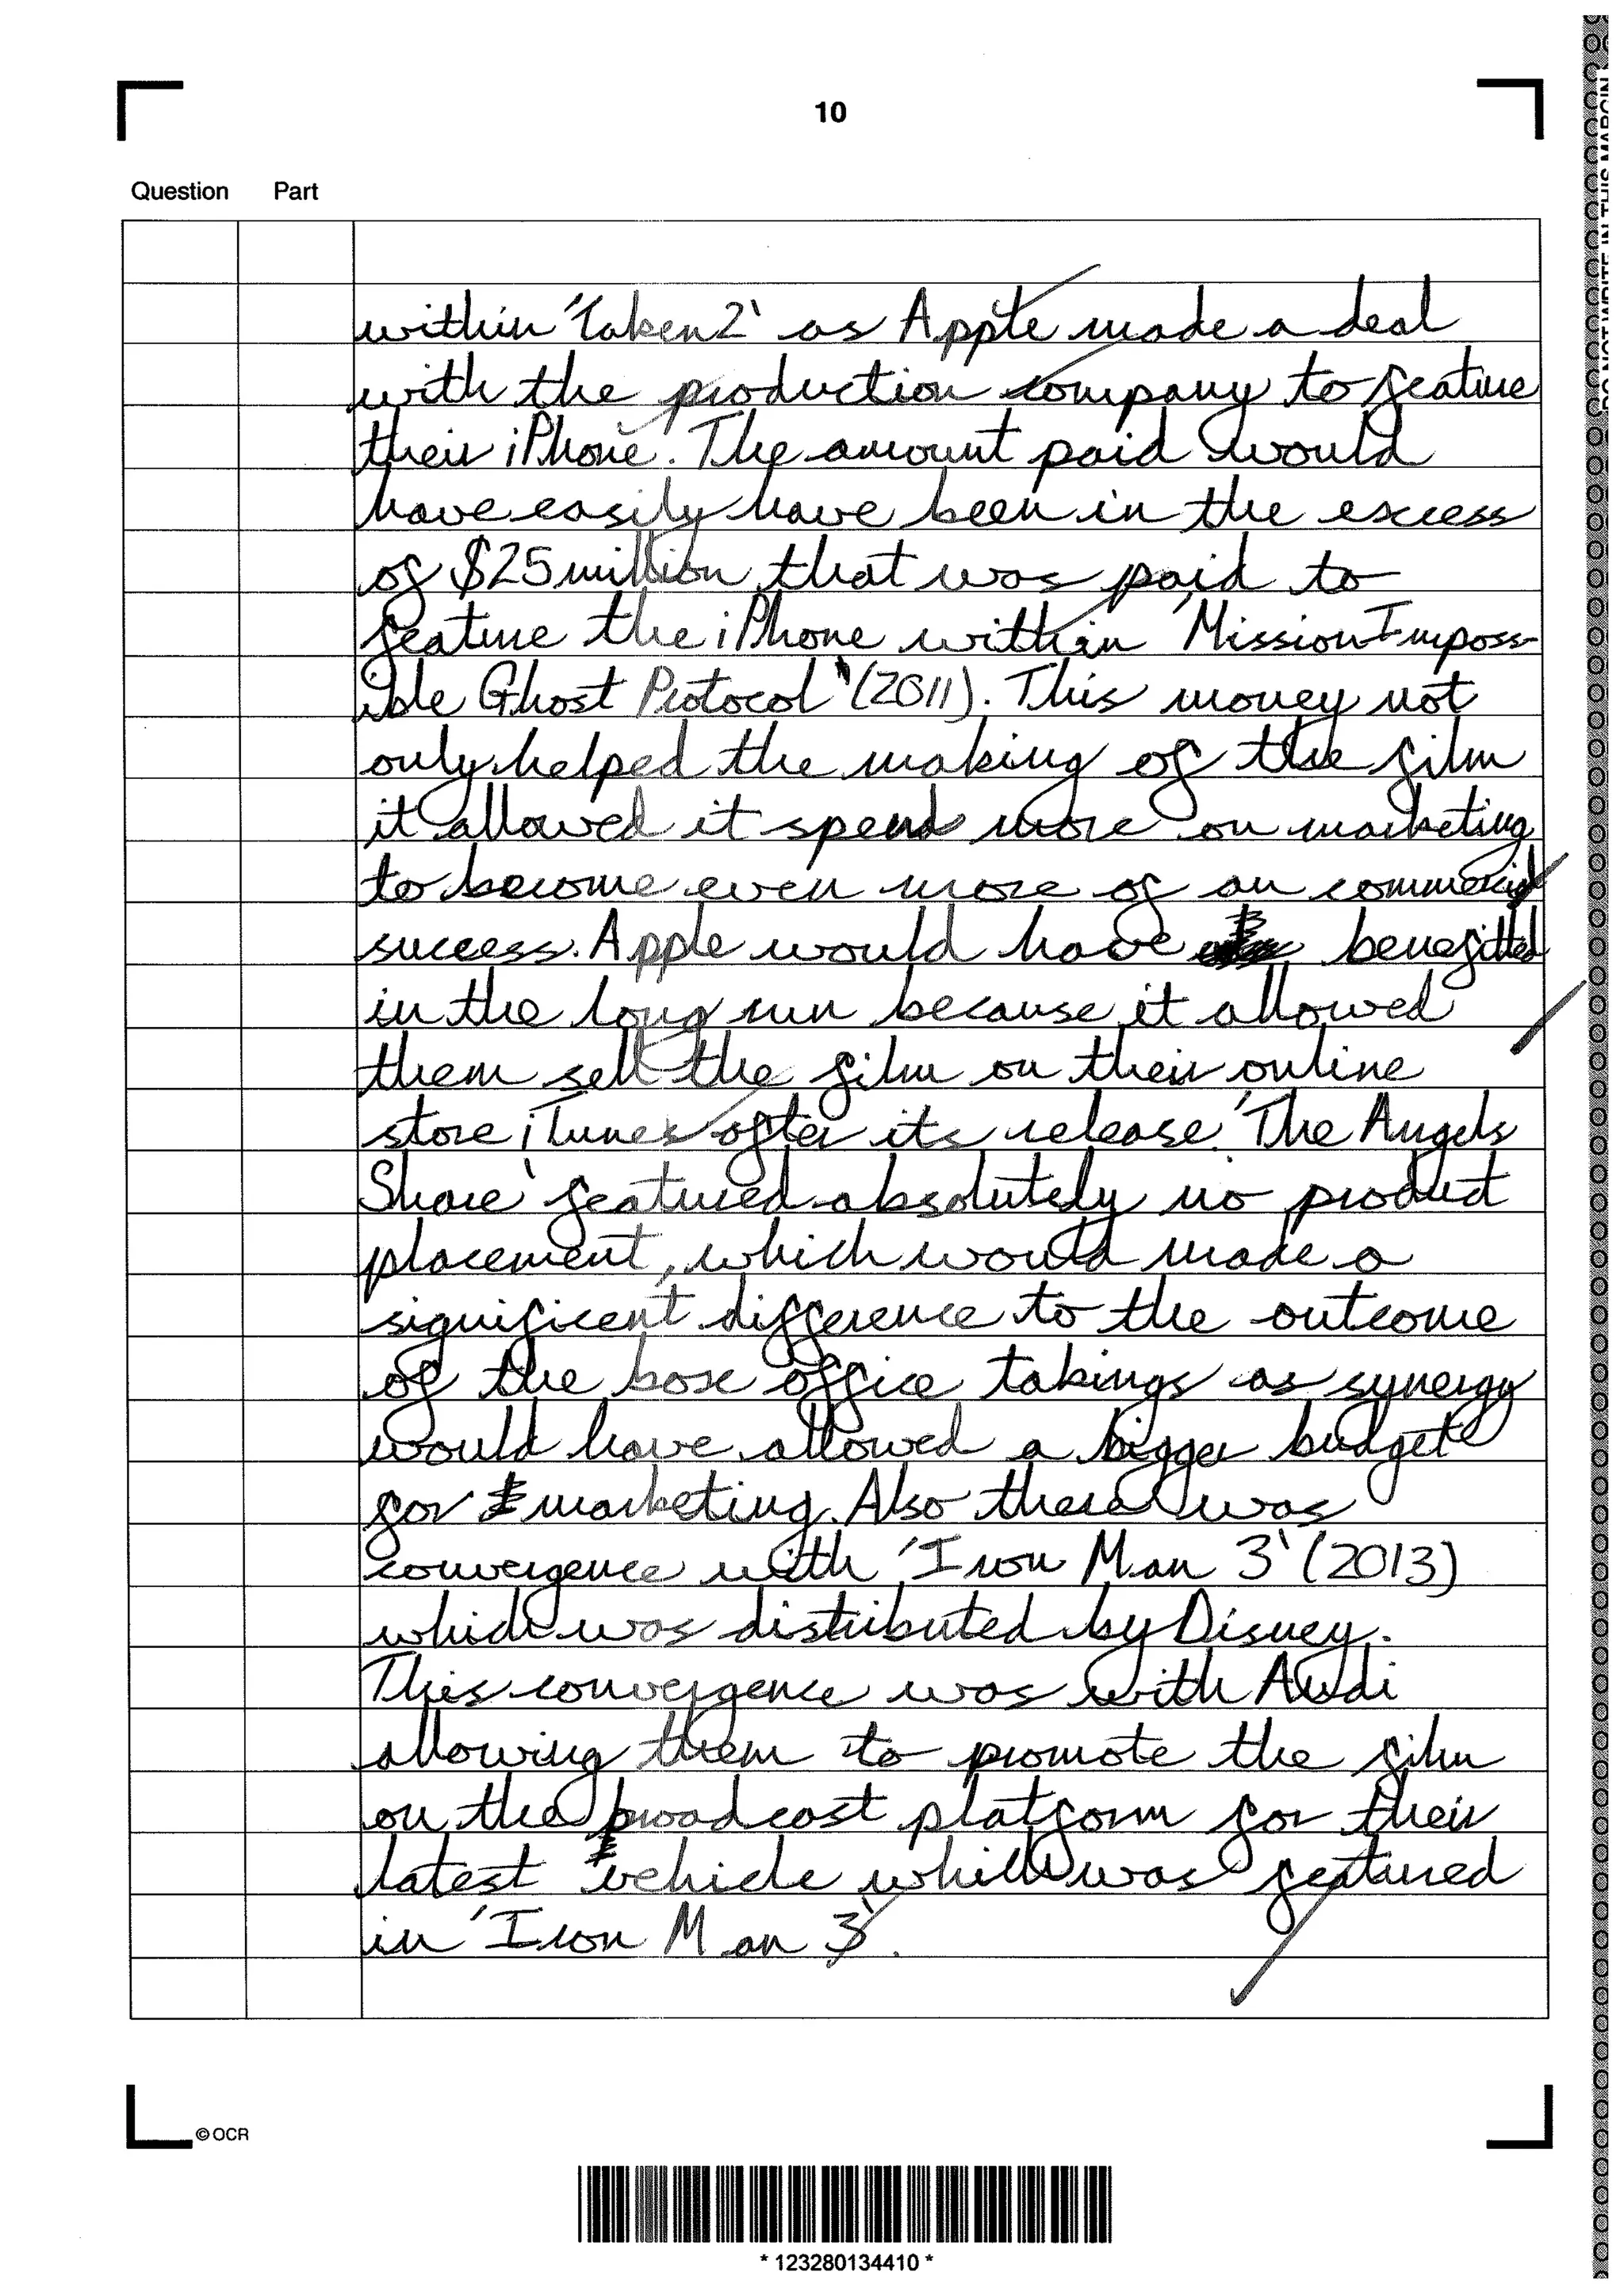 10
Question Part
within 'Taken2' as Apple made a deal
with the production company to feature
their iPhone. The amount paid would
have easily have been in the excess
of $25million that was paid to
feature the iPhone within 'Mission Imposs-
ible Ghost Protocol' (2011). This money not
only helped the making of the film
it allowed it spend more on marketing
to become even more of an commercial
success. Apple would have benefitted
in the long run because it allowed
them sell the film on their online
store iTunes after its release. 'The Angels
Share' featured absolutely no product
placement, which would made a
significent difference to the outcome
of the box office takings as synergy
would have allowed a bigger budget
for marketing. Also there was
convergence with 'Iron Man 3' (2013)
which was distributed by Disney.
This convergence was with Audi
allowing them to promote the film
on the broadcast platform for their
latest vehicle which was featured
in 'Iron Man 3'.
© OCR
*123280134410*
DO NOT WRITE IN THIS MARGIN